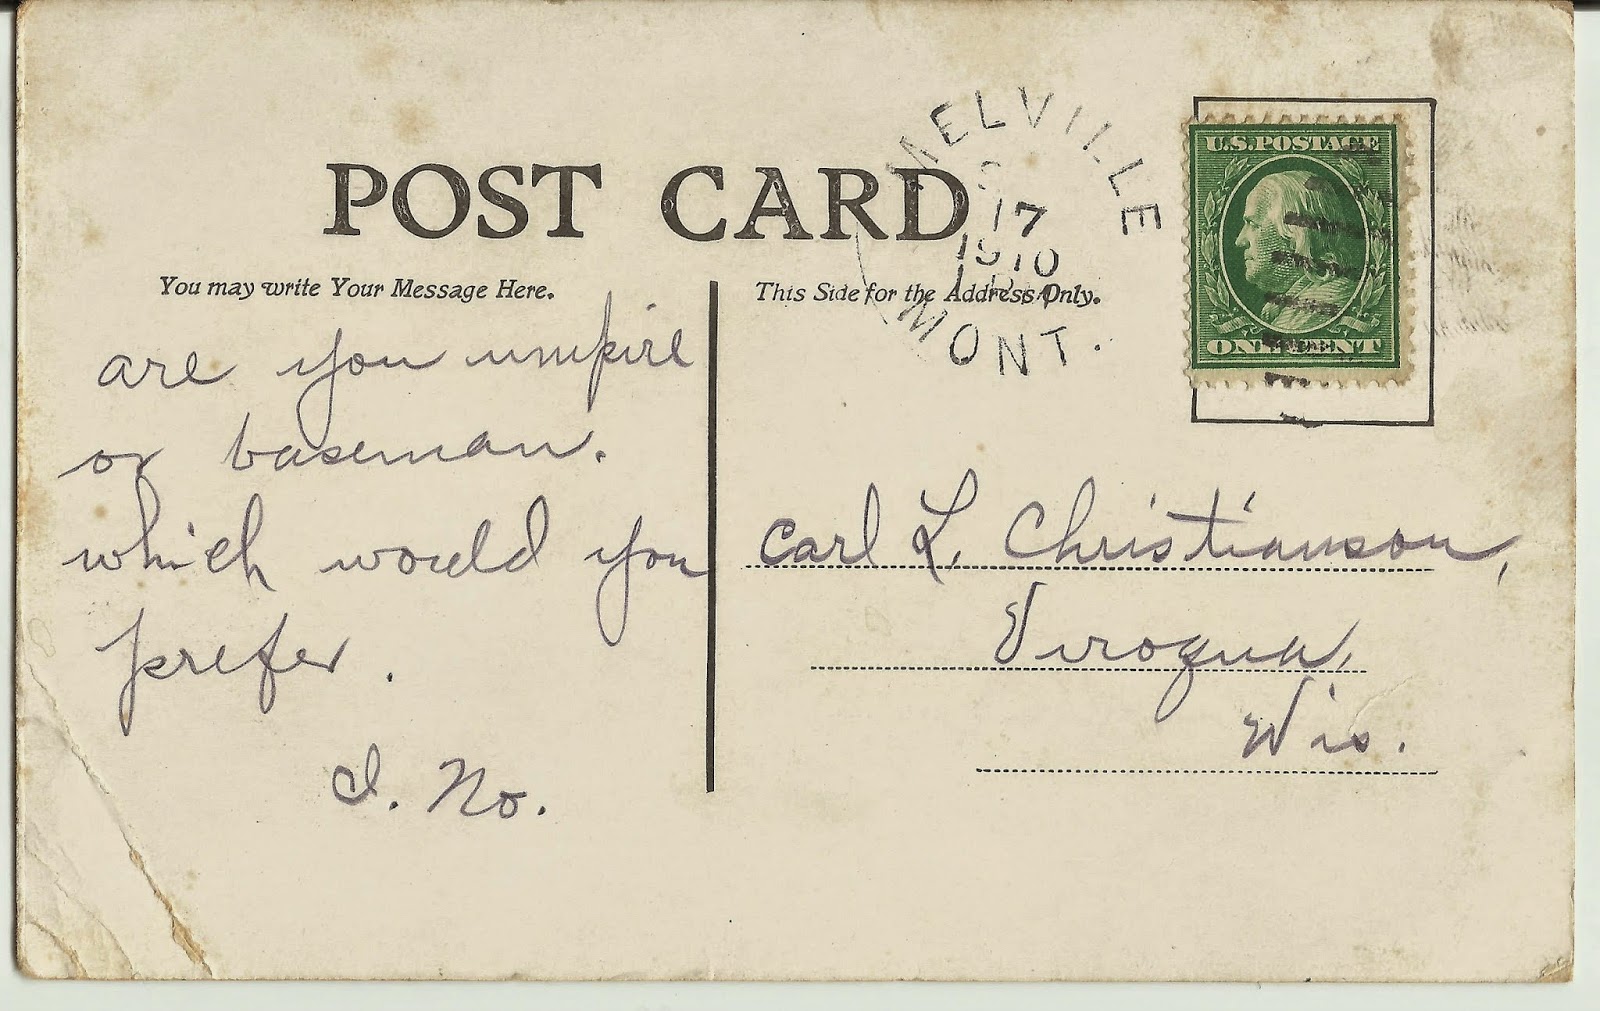 POST CARD
You may write Your Message Here.
This Side for the Address Only.
MELVILLE
17
1910
MONT.
U.S. POSTAGE
ONE CENT
are you umpire
or baseman.
which would you
prefer.
I. No.
Carl L. Christianson,
Viroqua,
Wis.